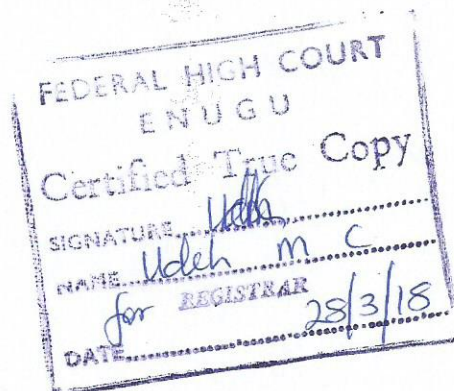 FEDERAL HIGH COURT
ENUGU
Certified True Copy
SIGNATURE
NAME Udeh M C
for REGISTRAR
DATE 28/3/18